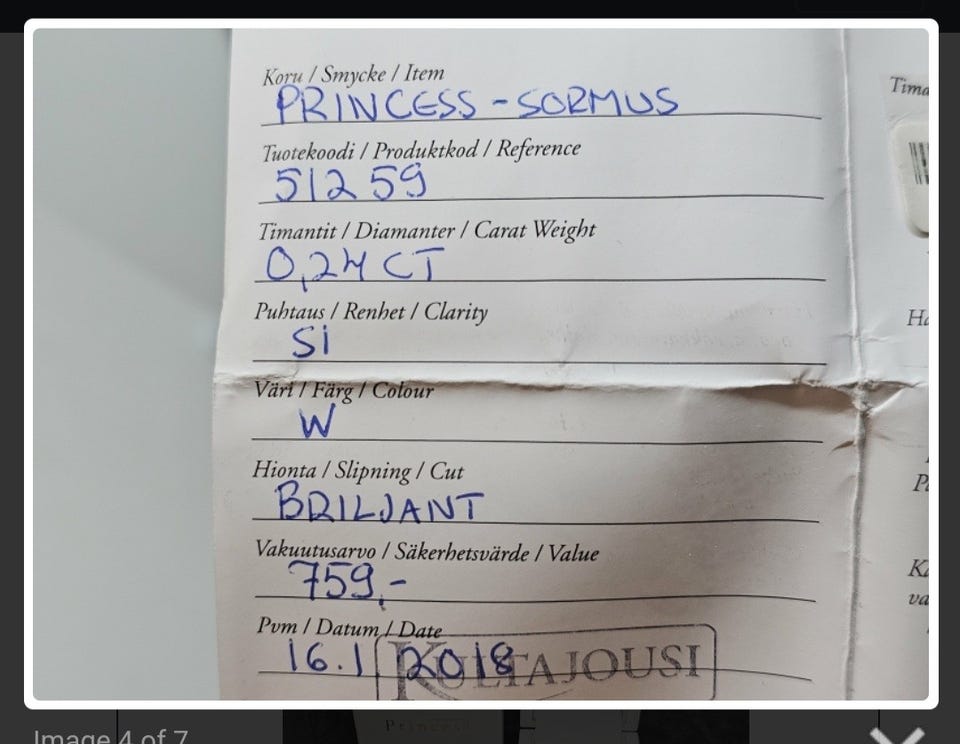 Koru / Smycke / Item
PRINCESS-SORMUS
Tuotekoodi / Produktkod / Reference
51259
Timantit / Diamanter / Carat Weight
0,24 CT
Puhtaus / Renhet / Clarity
Si
Väri / Färg / Colour
W
Hionta / Slipning / Cut
BRILJANT
Vakuutusarvo / Säkerhetsvärde / Value
759,-
Pvm / Datum / Date
16.1 2018
KULTAJOUSI
Princess
Image 4 of 7